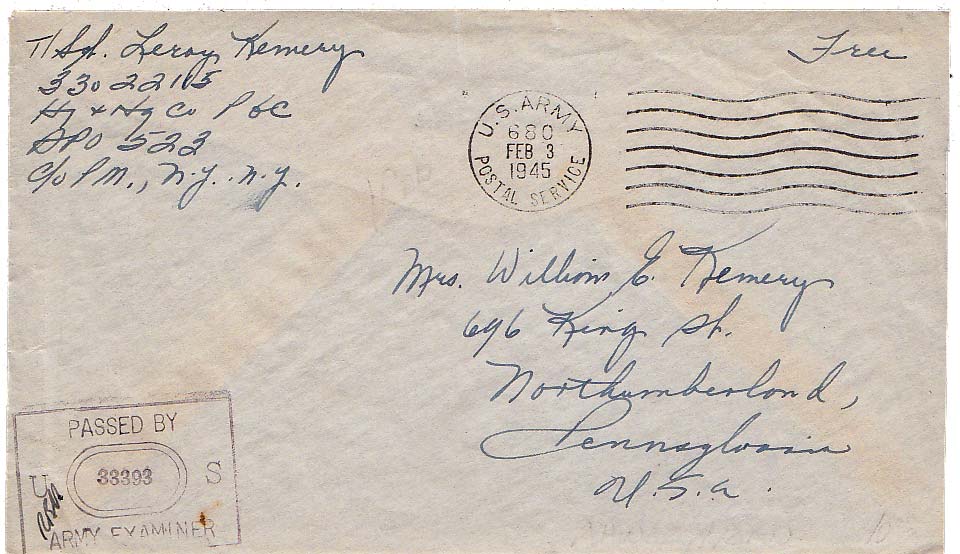 T/Sgt. Leroy Kemery
33022115
Hq + Hq Co PBC
APO 523
c/o P.M., N.Y. N.Y.
Free
U.S. ARMY
680
FEB 3
1945
POSTAL SERVICE
Mrs. William E. Kemery
696 King St.
Northumberland,
Pennsylvania
U.S.A.
PASSED BY
U 33393 S
ARMY EXAMINER